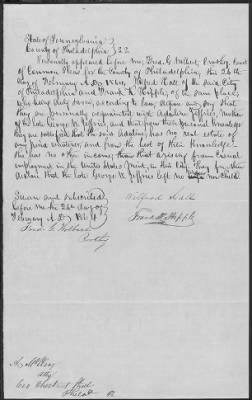 State of Pennsylvania }
County of Philadelphia } SS
Personally appeared before me, Fred G.
of Common Pleas for the County of Philadelphia, this 26th
day of February A.D. Wilfred Hall of the said City
of Philadelphia and Frank H. Hipple, of the same place,
who being duly sworn, according to law, depose and say that
they are personally acquainted with Mother
of the late George W. Jeffries, and that from their personal knowledge
they are satisfied that the said has no real estate of
any kind whatever, and from the best of their knowledge
she has no other income, than that arising from casual
employment in the United States Mint, in this City. They further
declare that the late George W. Jeffries left no nor child
Sworn and subscribed
before me the 26th day of
February A.D.
Wilfred Hall
Frank H. Hipple
Fred. G.
Atty
Chestnut Street
Philada